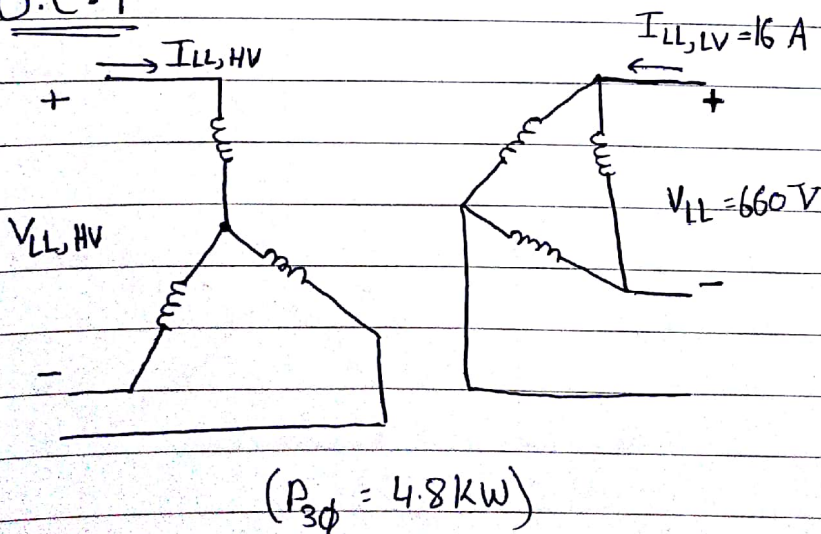 I_LL,HV
I_LL,LV = 16 A
+
+
V_LL,HV
V_LL = 660 V
-
-
(P_3ϕ = 4.8 KW)